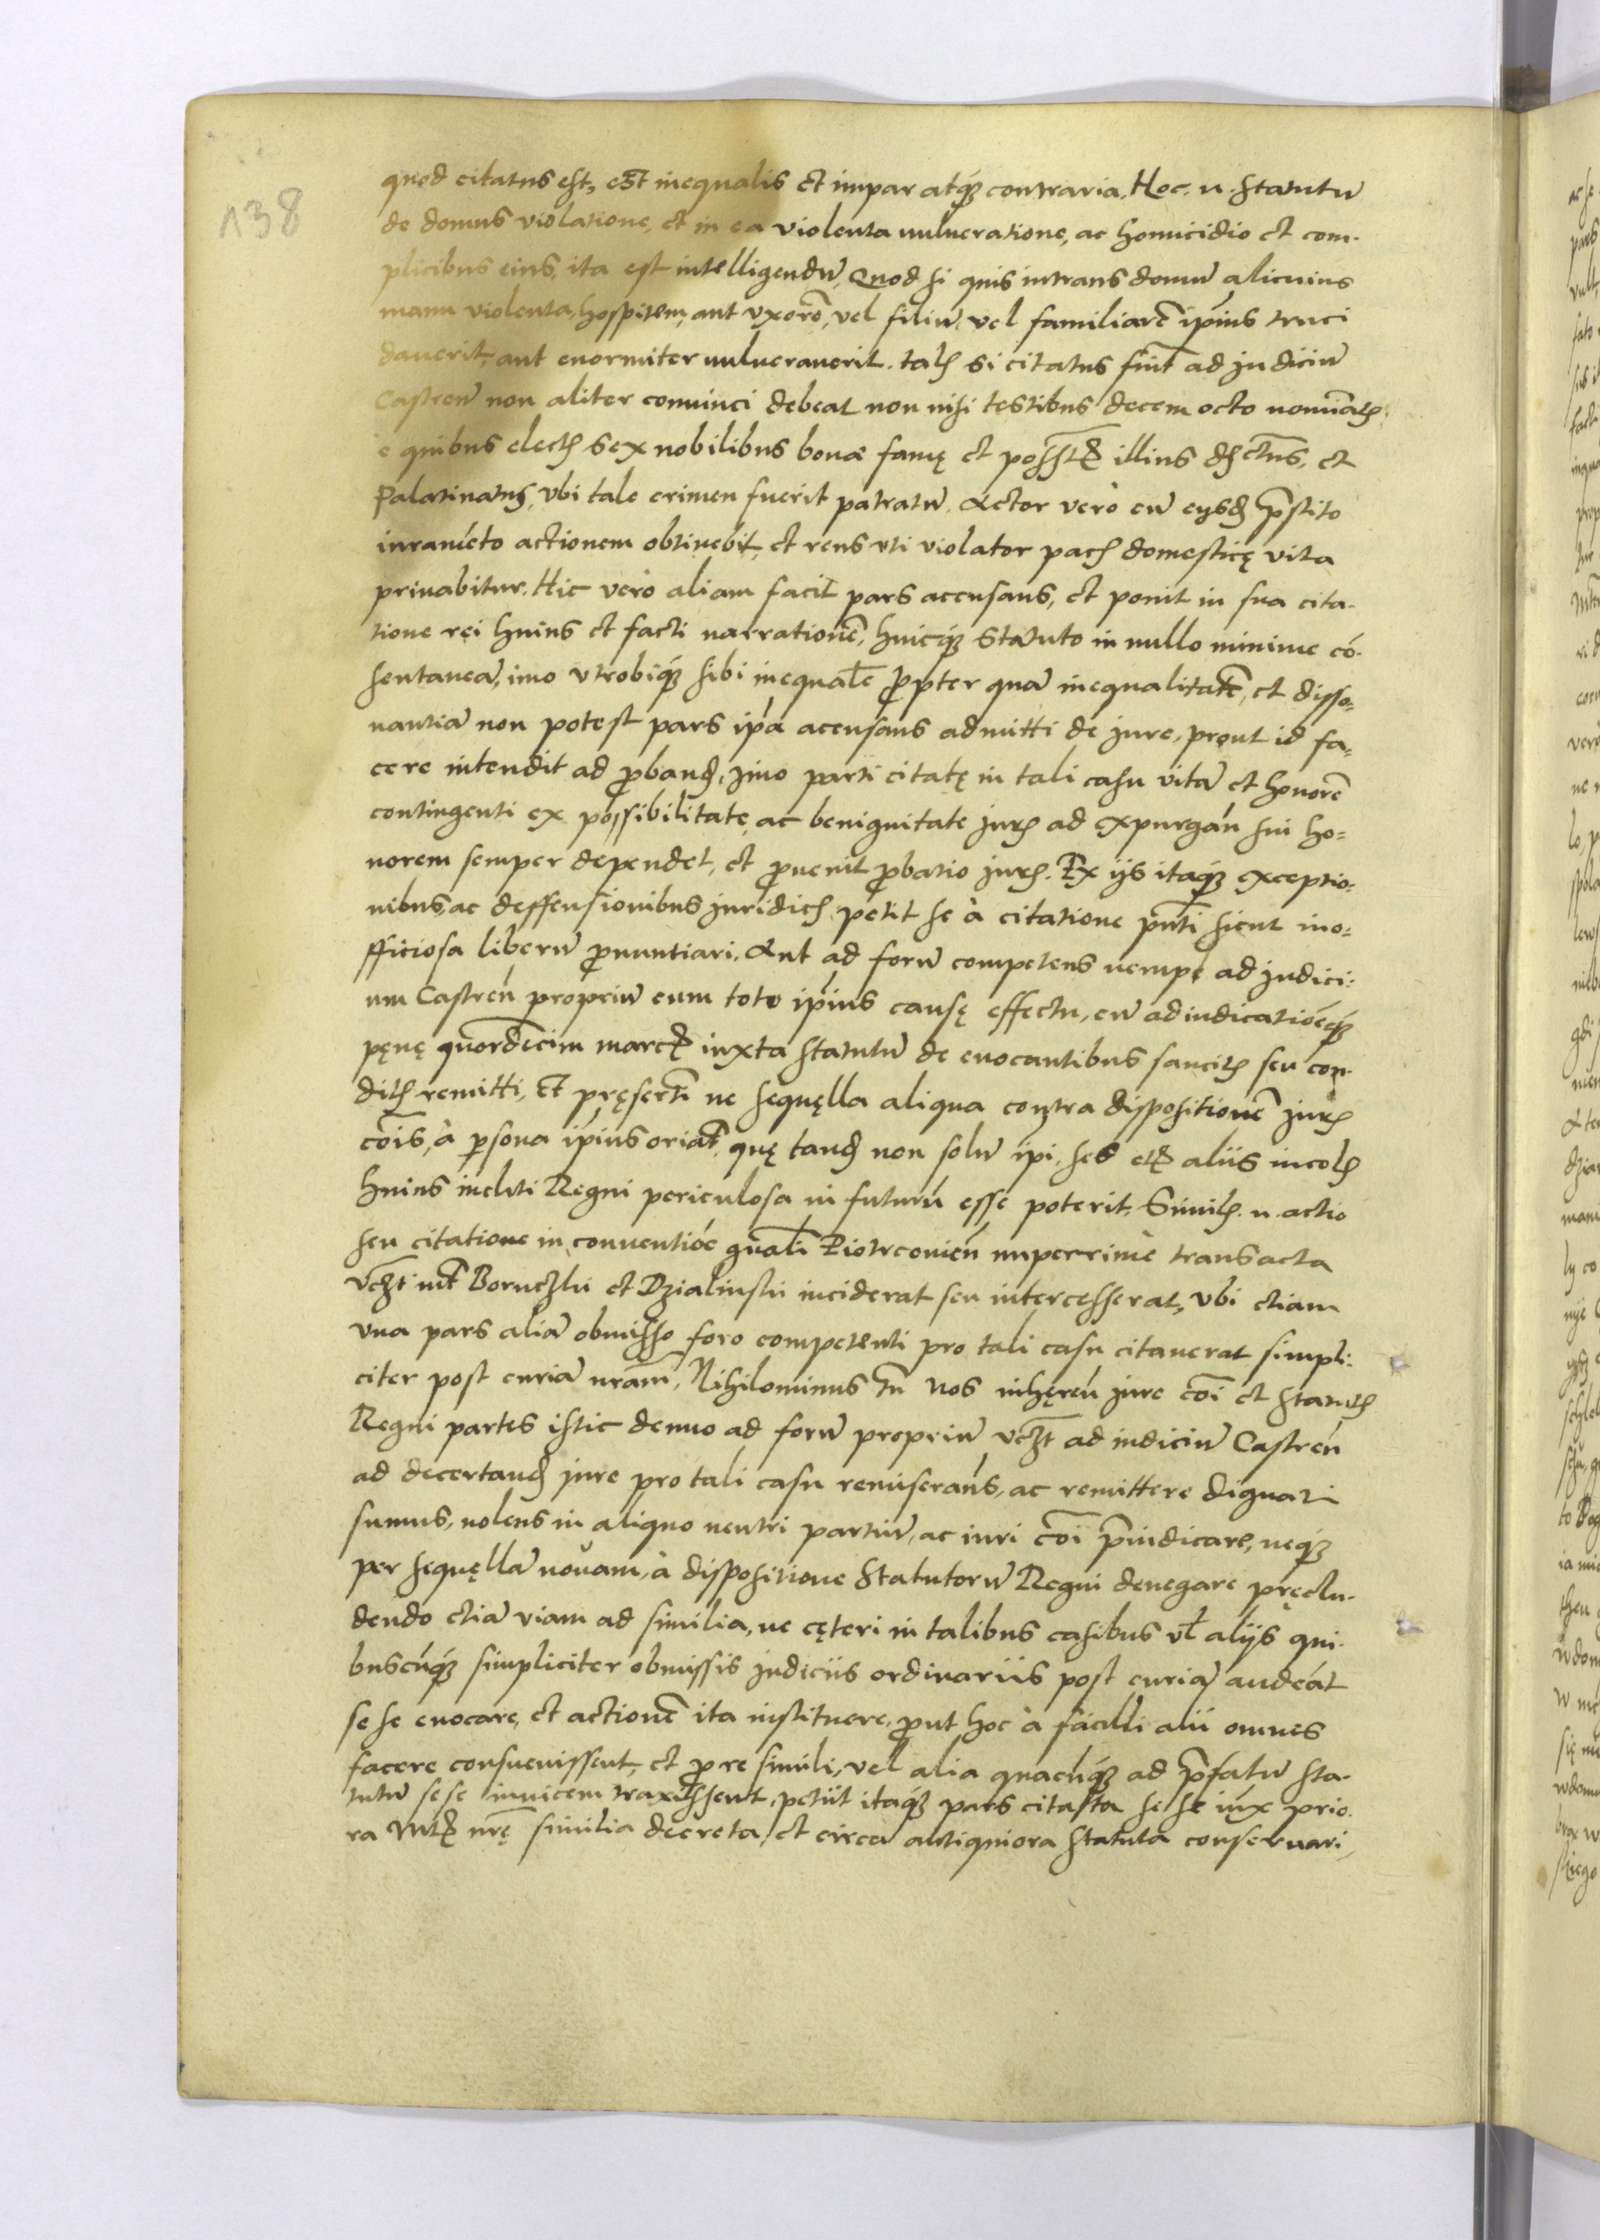 138
quod citatus est, est inequalis et impar atq́ꝫ contraria. Hoc. n. statutū
de domus violatione, et in ea violenta vulneratione, ac homicidio et com-
plicibus eius, ita est intelligendū, Quod si quis intrans domū alicuius
manu violenta, hospitem, aut vxorē, vel filiū, vel familiarē ipsius truci
dauerit, aut enormiter vulnerauerit. talꝭ si citatus fuit ad judiciū
Castren̄ non aliter conuinci debeat non nisi testibus decem octo nominatꝭ
e quibus electꝭ sex nobilibus bonæ famę et possꝭ illius dꝭctus, et
Palatinatus, vbi tale crimen fuerit patratū. Actor vero cū eysdꝭ p̄stito
iuraḿeto actionem obtinebit, et reus vti violator pacꝭ domesticę vita
priuabitur. Hic vero aliam facit pars accusans, et ponit in sua cita-
tione rei huius et facti narrationē, huicq́ꝫ Statuto in nullo minime có-
sentaneā, imo vtrobiq́ꝫ sibi inequalē ꝓpter quā inequalitatē, et disso-
nantiā non potest pars ipá acusans admitti de jure, prout id fa-
cere intendit ad ꝓbandꝭ, jmo parti citatę in tali casu vitā et honorē
contingenti ex possibilitate ac benignitate jurꝭ ad expurgań sui ho-
norem semper dependet, et ꝓuenit ꝓbatio jurꝭ. Ex ijs itaq́ꝫ exceptio-
nibus, ac deffensionibus juridicꝭ petit se à citatione pn̄ti sicut ino-
fficiosa liberū ꝓnuntiari. Aut ad forū competens nempe ad judici-
um Castreń propriū cum toto ipsius causę effectu, cū adiudicatióeq́ꝫ
pęnę quordecim marcꝭ iuxta statutū de euocantibus sancitꝭ seu con-
ditꝭ remitti, Et pręsertī ne sequęlla aliqua contra dispositionē jurꝭ
cōis, à ꝑsona ipsius oriat̄, quę tandꝭ non solū ipi, sed etꝭ aliis incolꝭ
huius incliti Regni periculosa in futurū esse poterit. Similꝭ. n. actio
seu citatione in conuentióe gn̄ali Piotrcouień nuperrimè transacta
vcꝫt int̄ Boruczki et Dzialinski inciderat seu intercesserat, vbi etiam
vna pars aliā obmisso foro competenti pro tali casu citauerat simpli-
citer post curiā nram̄, Nihilominus tn̄ Nos inhęreń jure cōi et statutꝭ
Regni partes istic denuo ad forū propriū vcꝫt ad iudiciū Castreń
ad decertandꝭ jure pro tali casu remiserań, ac remittere dignati
sumus, nolens in aliquo neutri partiū, ac iuri cōi p̄iudicare, neq́ꝫ
per sequęllā nouam, à dispositione Statutorū Regni denegare pręclu-
dendo etiā viam ad similia, ne cęteri in talibus casibus vl̄ alijs qui-
buscúq́ꝫ simpliciter obmissis judiciis ordinariis post curiā audeát
se se euocare, et actionē ita instituere, ꝓut hoc à facili alii omnes
facere consueuissent, et ꝓ re simili, vel alia quacúq́ꝫ ad p̄fatū sta-
tutū sese inuicem traxissent. petiit itaq́ꝫ pars citata se se iúx prio-
ra Mtꝭ nrę similia decreta, et circa antiquiora statuta conseruari,